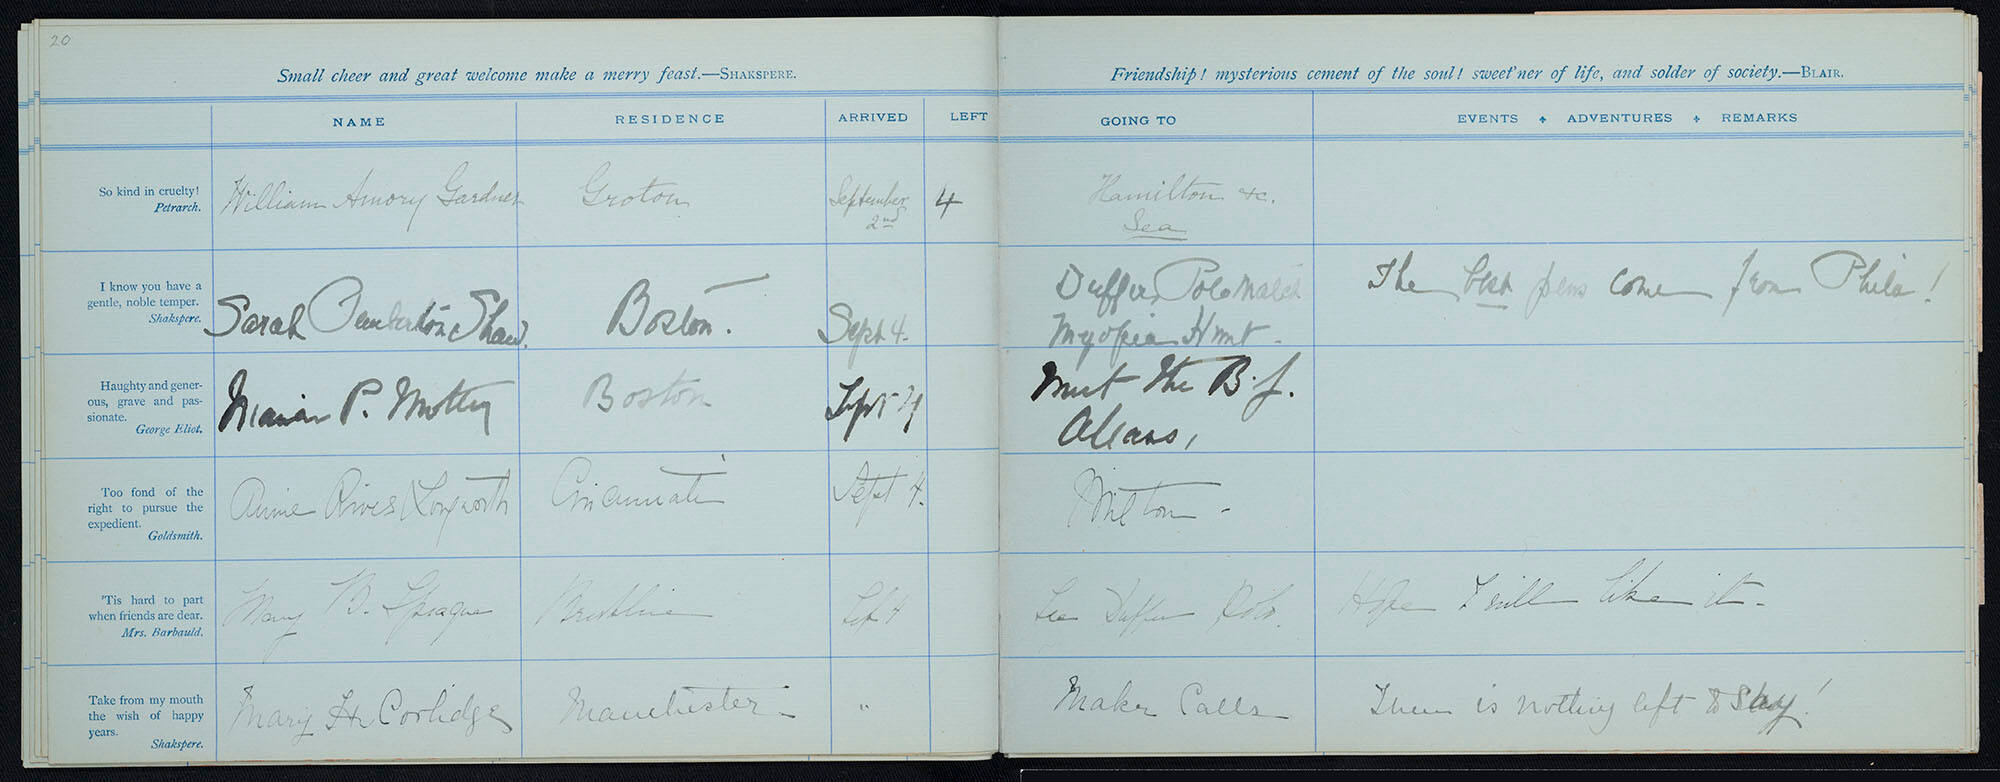 20
Small cheer and great welcome make a merry feast.—SHAKSPERE.
Friendship! mysterious cement of the soul! sweet'ner of life, and solder of society.—BLAIR.
NAME RESIDENCE ARRIVED LEFT GOING TO EVENTS ✦ ADVENTURES ✦ REMARKS
So kind in cruelty!
Petrarch.
William Amory Gardner Groton September 2nd 4 Hamilton &c.
Sea
I know you have a
gentle, noble temper.
Shakspere.
Sarah Pemberton Shaw. Boston. Sept 4. Duffer Polo Match
Myopia Hunt -
The best pens come from Phila!
Haughty and gener-
ous, grave and pas-
sionate.
George Eliot.
Marian P. Motley Boston Sept 4 Meet the B.J.
Too fond of the
right to pursue the
expedient.
Goldsmith.
Annie Rives Longworth Cincinnati Sept 4. Milton -
'Tis hard to part
when friends are dear.
Mrs. Barbauld.
Mary B. Sprague Brookline Sept 4 See Duffer Polo. Hope I will like it -
Take from my mouth
the wish of happy
years.
Shakspere.
Mary H. Coolidge Manchester - " Maker Calls There is nothing left to say!